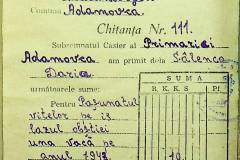 Comuna Adamovca
Chitanța Nr. 111.
Subsemnatul Casier al Primariei
Adamovca am primit dela Sălenca
Daria
următoarele sume:
SUMA
R. K. K. S
Pf
Pentru Pașunatul
vitelor pe is
lazul obștiei
una vacă pe
anul 1943
10